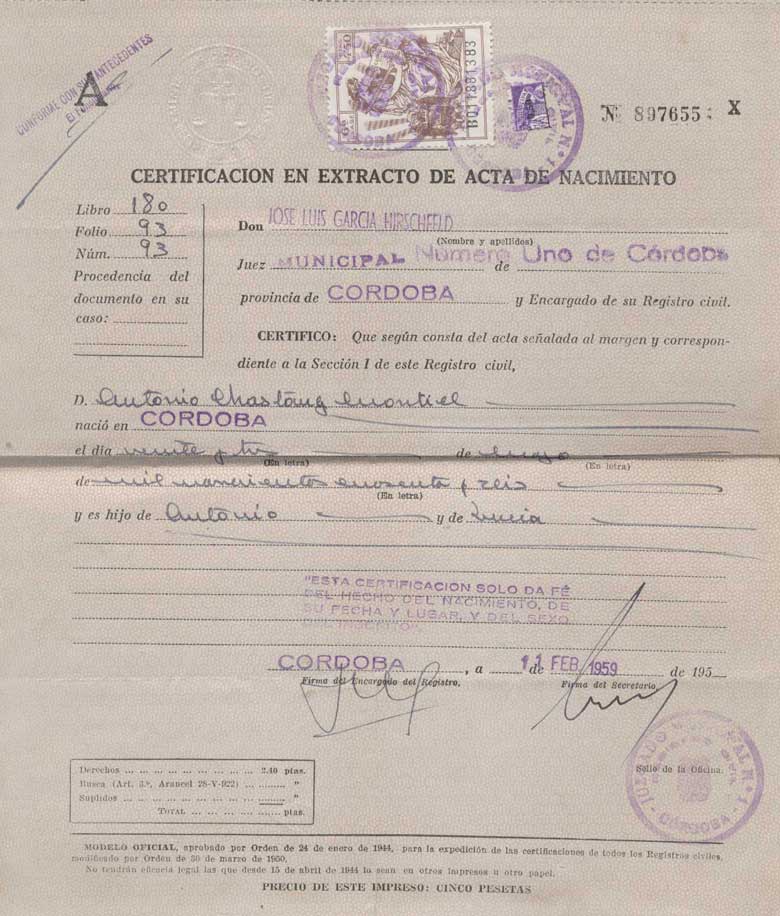 CONFORME CON SUS ANTECEDENTES
A
Nº 897655 X
B01781383
CERTIFICACION EN EXTRACTO DE ACTA DE NACIMIENTO
Libro 180
Folio 93
Núm. 93
Procedencia del
documento en su
caso:
Don JOSE LUIS GARCIA HIRSCHFELD
(Nombre y apellidos)
Juez MUNICIPAL Número de Uno de Córdoba
provincia de CORDOBA y Encargado de su Registro civil.
CERTIFICO: Que según consta del acta señalada al margen y correspon-
diente a la Sección 1 de este Registro civil,
D. Antonio Chastang Montiel
nació en CORDOBA
el día veinte y tres de mayo
(En letra) (En letra)
de mil novecientos noventa y seis
(En letra)
y es hijo de Antonio y de Lucia
"ESTA CERTIFICACION SOLO DA FÉ
DEL HECHO DEL NACIMIENTO, DE
SU FECHA Y LUGAR, Y DEL SEXO
DEL INSCRITO"
CORDOBA, a 11 de FEB. 1959 de 195
Firma del Encargado del Registro. Firma del Secretario,
Sello de la Oficina.
JUZGADO MUNICIPAL N.º 1
CÓRDOBA
Derechos ... 2.40 ptas.
Busca (Art. 3.º, Arancel 28-V-922) ... "
Suplidos ... "
TOTAL ... ptas.
MODELO OFICIAL, aprobado por Orden de 24 de enero de 1944, para la expedición de las certificaciones de todos los Registros civiles,
modificado por Orden de 30 de marzo de 1950.
No tendrán eficacia legal las que desde 15 de abril de 1944 lo sean en otros impresos u otro papel.
PRECIO DE ESTE IMPRESO: CINCO PESETAS